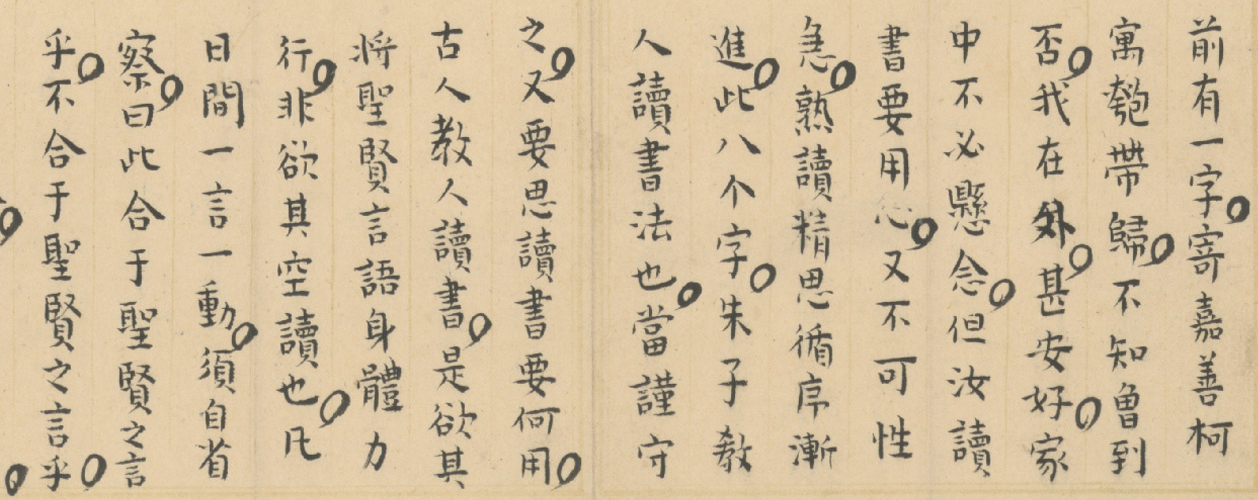 前有一字寄嘉善柯
寓匏帶歸不知曾到
否我在外甚安好家
中不必懸念但汝讀
書要用心又不可性
急熟讀精思循序漸
進此八个字朱子教
人讀書法也當謹守
之又要思讀書要何用
古人教人讀書是欲其
将聖賢言語身體力
行非欲其空讀也凡
日間一言一動須自省
察曰此合于聖賢之言
乎不合于聖賢之言乎